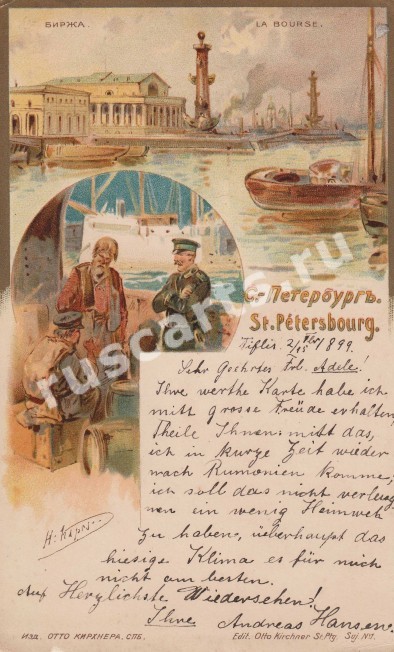 БИРЖА. LA BOURSE.
С.-Петербургъ.
St. Pétersbourg.
Tiflis. 2/15 1899.
Sehr Geehrtes Frl. Adele!
Ihre werthe Karte habe ich
mitt grosse Freude erhalten,
Theile Ihnen mitt das,
ich in kurze Zeit wieder
nach Rumonien komme,
ich soll das nicht
nen ein wenig Heimweh
zu haben, ueberhaupt das
hiesige Klima es für mich
nicht am besten.
Auf Herzlichste Wiedersehen!
Ihre Andreas Hansen.
ИЗД. ОТТО КИРХНЕРА. СПБ. Edit. Otto Kirchner St. Ptg. Suj. № 1.
ruscarts.ru